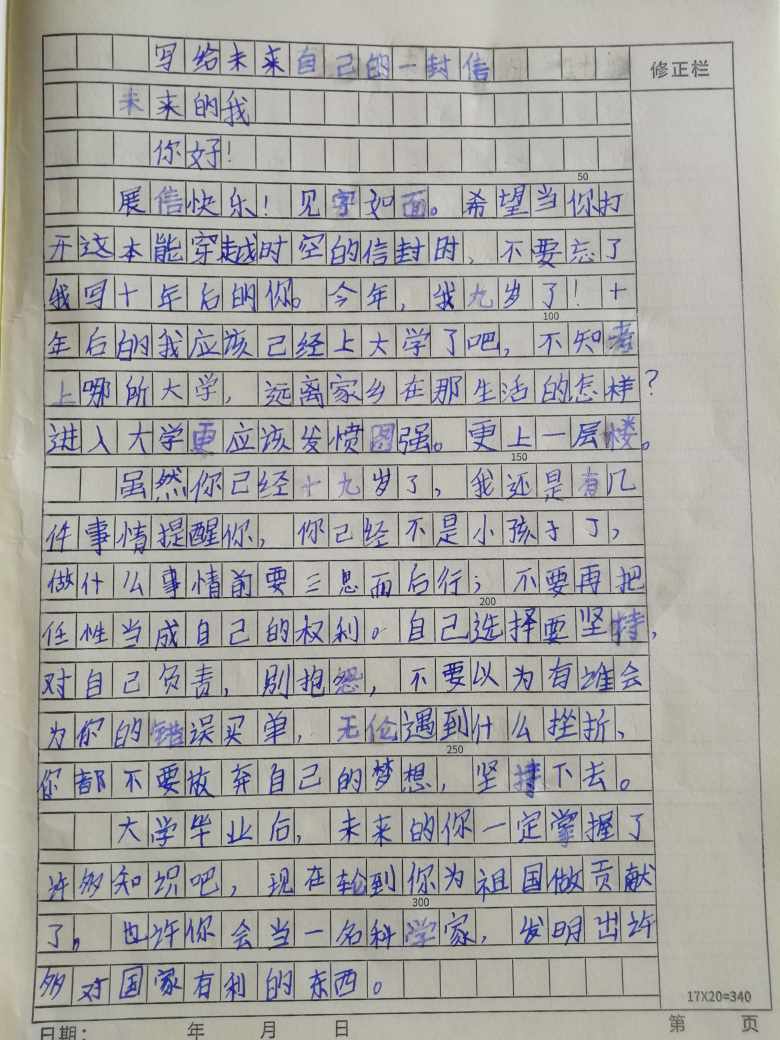 写给未来自己的一封信
修正栏
未来的我
你好！
50
展信快乐！见字如面。希望当你打
开这本能穿越时空的信封时，不要忘了
我写十年后的你。今年，我九岁了！十
100
年后的我应该己经上大学了吧，不知考
上哪所大学，远离家乡在那生活的怎样？
进入大学更应该发愤图强。更上一层楼。
150
虽然你己经十九岁了，我还是有几
件事情提醒你，你己经不是小孩子了，
做什么事情前要三思而后行；不要再把
200
任性当成自己的权利。自己选择要坚持，
对自己负责，别抱怨，不要以为有谁会
为你的错误买单，无伦遇到什么挫折、
250
你都不要放弃自己的梦想，坚持下去。
大学毕业后，未来的你一定掌握了
许多知识吧，现在轮到你为祖国做贡献
300
了，也许你会当一名科学家，发明出许
多对国家有利的东西。
17X20=340
日期： 年 月 日 第 页